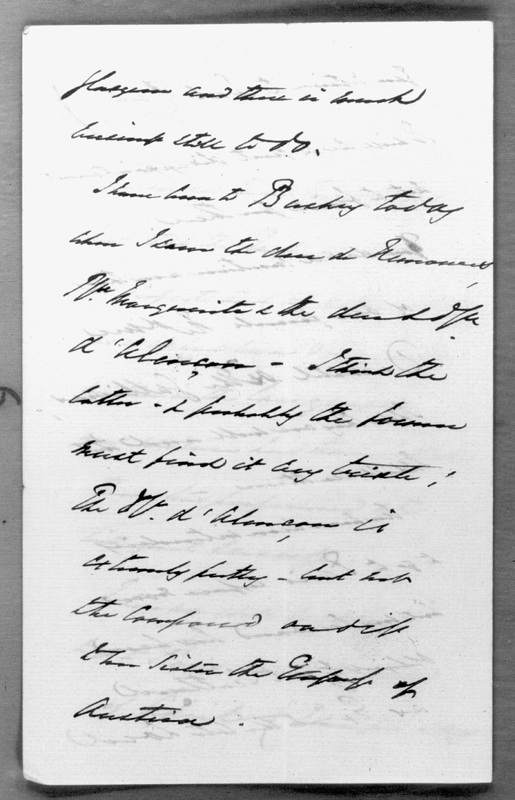 and there is much
still to do.
I have been to Bushey today
when I saw the Duc de Nemours
Pss. Marguerite & the Duc & Dss
d'Alençon – I think the
latter – & probably the former
must find it very triste!
The Dss. d'Alençon is
extremely pretty – but not
to be compared on dit
to her Sister the Empress of
Austria.